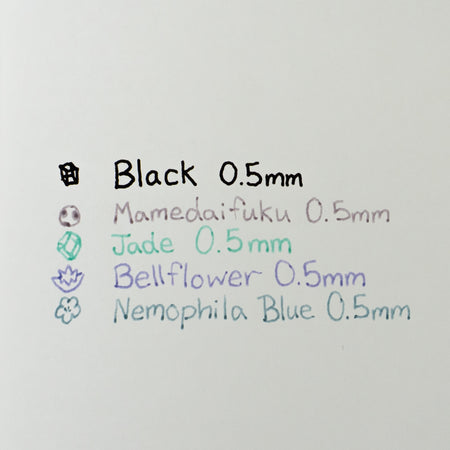 Black 0.5mm
Mamedaifuku 0.5mm
Jade 0.5mm
Bellflower 0.5mm
Nemophila Blue 0.5mm